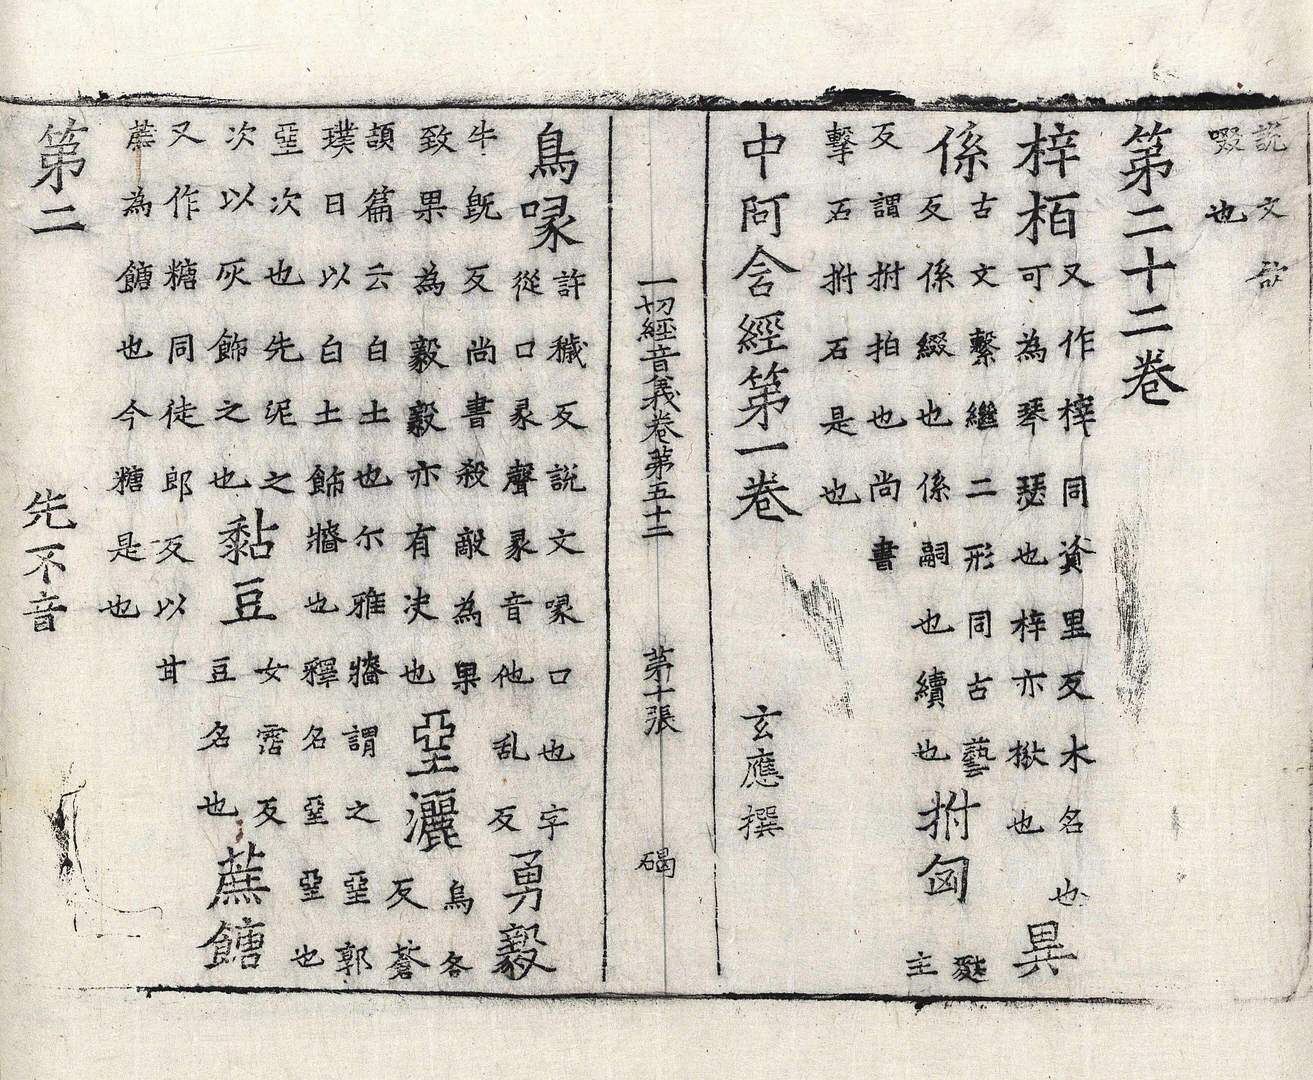 說文
啜也
第二十二卷
梓栢
又作梓同資里反木名也
可為琴瑟也梓亦楸也
異
係
古文繫繼二形同古藝
反係綴也係嗣也續也
拊匈
麩
主
反謂拊拍也尚書
擊石拊石是也
中阿含經第一卷 玄應撰
一切經音義卷第五十二 第十張 碣
鳥喙
許穢反說文喙口也字
從口彖聲彖音他乱反
勇毅
牛既反尚書殺敵為果
致果為毅毅亦有决也
堊灑
烏各
反蒼
頡篇云白土也尓雅牆謂之堊郭
璞曰以白土飾牆也釋名堊堊也
堊次也先泥之
次以灰飾之也
黏豆
女霑反
豆名也
蔗餹
又作糖同徒郎反以甘
蔗為餹也今糖是也
第二 先不音